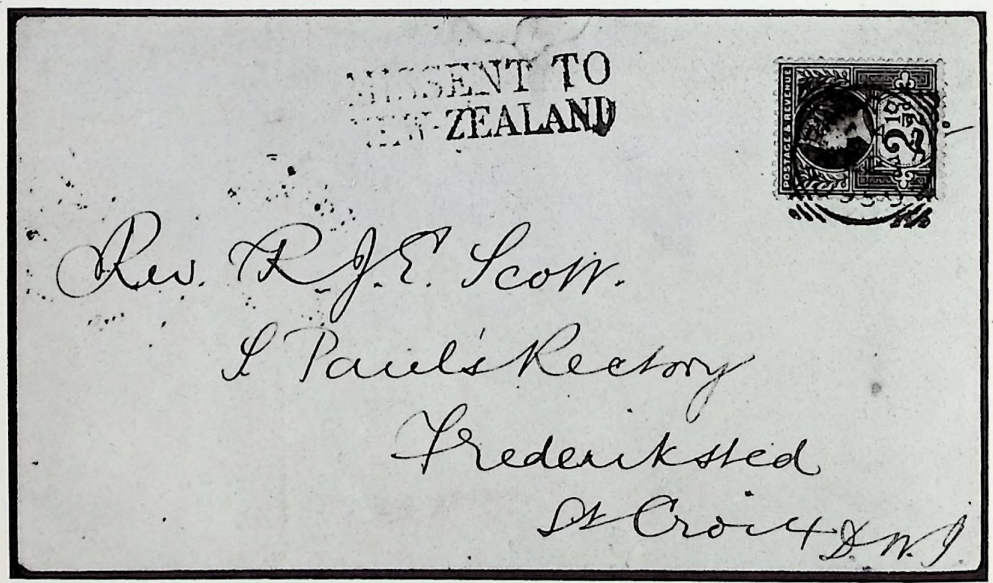 MISSENT TO
NEW-ZEALAND
POSTAGE & REVENUE
2½
Rev. R. J. E. Scott.
S Paul's Rectory
Frederiksted
St Croix D. W. I